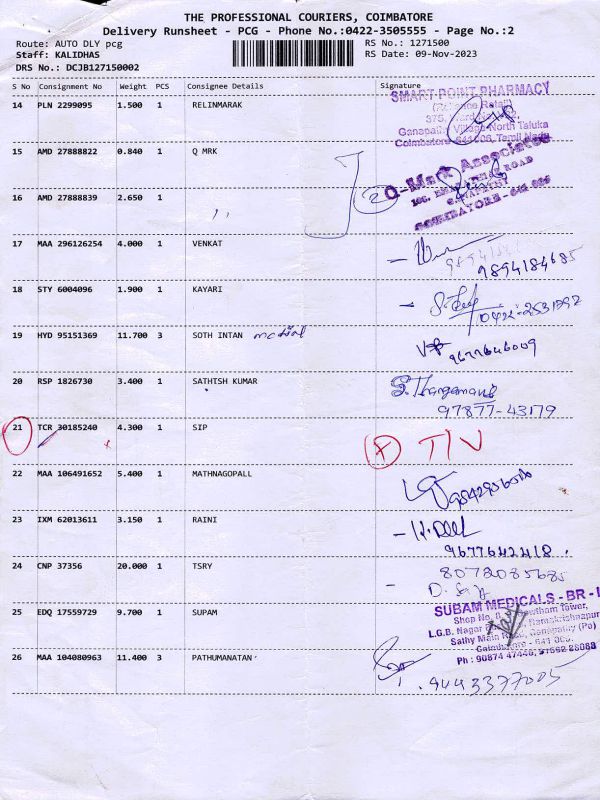 THE PROFESSIONAL COURIERS, COIMBATORE
Delivery Runsheet - PCG - Phone No.:0422-3505555 - Page No.:2
Route: AUTO DLY pcg
RS No.: 1271500
Staff: KALIDHAS
RS Date: 09-Nov-2023
DRS No.: DCJB127150002
S No Consignment No Weight PCS Consignee Details Signature
14 PLN 2299095 1.500 1 RELINMARAK
SMART POINT PHARMACY
375,
Ganapathy Village North Taluka
Coimbatore Tamil Nadu
15 AMD 27888822 0.840 1 Q MRK
2
Q-Mark Associates
ROAD
GANAPATHY
COIMBATORE - 641 006
16 AMD 27888839 2.650 1 ,,
17 MAA 296126254 4.000 1 VENKAT
9894184685
18 STY 6004096 1.900 1 KAYARI
0422-2531292
19 HYD 95151369 11.700 3 SOTH INTAN
9677646009
20 RSP 1826730 3.400 1 SATHTSH KUMAR
S. Thangamani
97877-43179
21 TCR 30185240 4.300 1 SIP
T/V
22 MAA 106491652 5.400 1 MATHNAGOPALL
23 IXM 62013611 3.150 1 RAINI
9677642418.
24 CNP 37356 20.000 1 TSRY
8072085685
25 EDQ 17559729 9.700 1 SUPAM
SUBAM MEDICALS - BR - I
Shop No. Gowtham Tower,
L.G.B. Nagar Ramakrishnapur
Sathy Main Road, Ganapathy (Po)
Coimbatore - 641 006.
Ph : 90874 47446,
26 MAA 104080963 11.400 3 PATHUMANATAN
9443377005